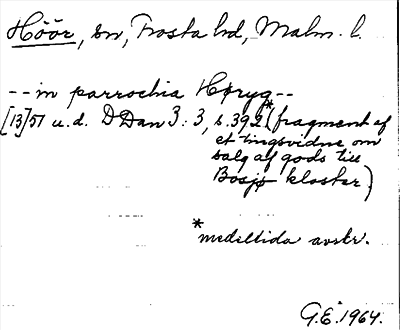 Höör, sn, Frosta hd, Malm. l.
--in parrochia Høryg--
[13]57 u.d. DDan 3:3, s.392* (fragment af
et tingsvidne om
salg af gods till
Bosjø kloster)
*medeltida avskr.
G.E. 1964.